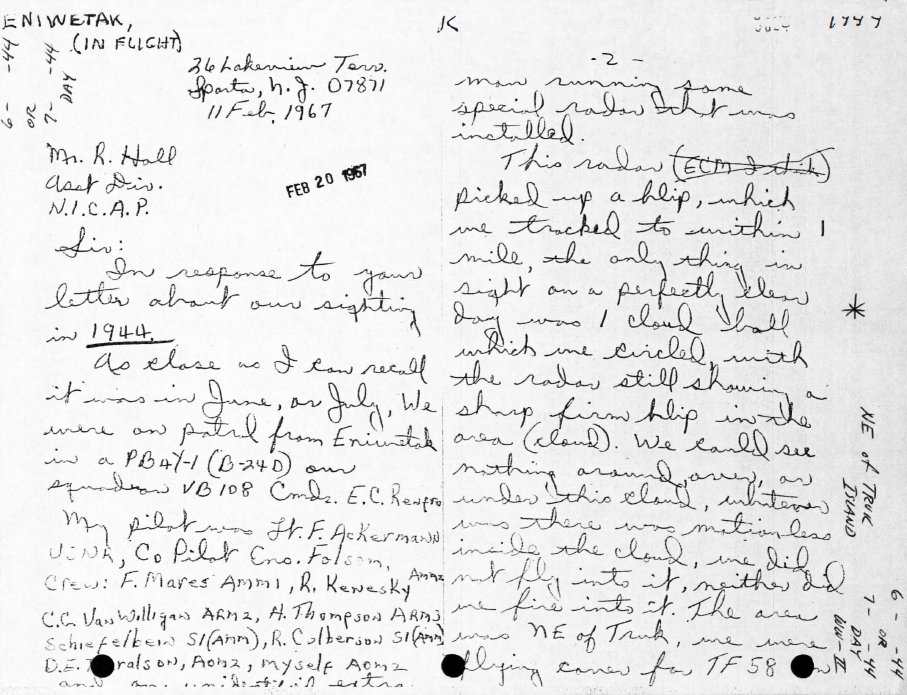 ENIWETAK,
(IN FLIGHT)
6- -44
OR
7- DAY -44
26 Lakeview Terr.
Sparta, N.J. 07871
11 Feb, 1967
Mr. R. Hall
Asst Div.
N.I.C.A.P.
FEB 20 1967
Sir:
In response to your
letter about our sighting
in 1944.
As close as I can recall
it was in June, or July, We
were on patrol from Eniwetak
in a PB4Y-1 (B-24D) our
squadron VB 108 Cmdr. E.C. Renfro
My pilot was Lt. F. Ackermann
USNR, Co Pilot Ens. Folsom,
Crew: F. Mares AMM1, R. Kenesky AMM2
C.C. VanWilligan ARM2, H. Thompson ARM3
Schiefelbein S1(AMM), R. Culberson S1(AMM)
D.E. AOM2, myself AOM2
and an extra
K
1944
-2-
man running some
special radar that was
installed.
This radar (ECM I think)
picked up a blip, which
we tracked to within 1
mile, the only thing in
sight on a perfectly clear
day was 1 cloud ball
which we circled, with
the radar still showing a
sharp firm blip in the
area (cloud). We could see
nothing around, over, or
under this cloud, whatever
was there was motionless
inside the cloud, we did
not fly into it, neither did
we fire into it. The area
was NE of Truk, we were
flying cover for TF 58 on
*
NE of TRUK
ISLAND
6- -44
OR
7- -44
DAY
WW-II